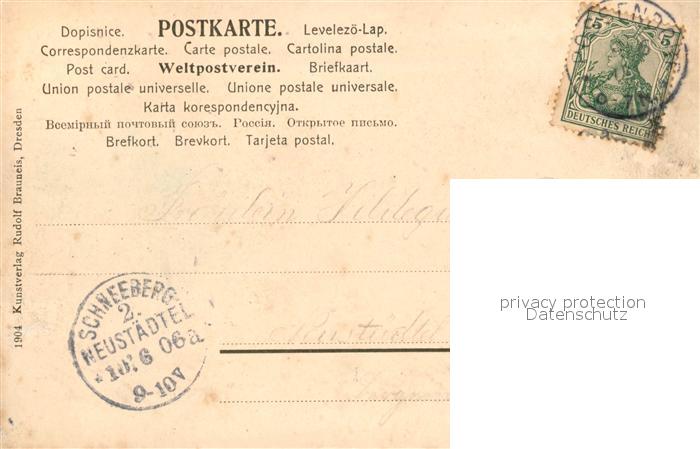 Dopisnice. POSTKARTE. Levelezö-Lap.
Correspondenzkarte. Carte postale. Cartolina postale.
Post card. Weltpostverein. Briefkaart.
Union postale universelle. Unione postale universale.
Karta korespondencyjna.
Всемірный почтовый союзъ. Россія. Открытое письмо.
Brefkort. Brevkort. Tarjeta postal.
5 5
DEUTSCHES REICH
1904 Kunstverlag Rudolf Brauneis, Dresden
Fräulein
privacy protection
Datenschutz
SCHNEEBERG-
2.
NEUSTÄDTEL
06a
9-10V